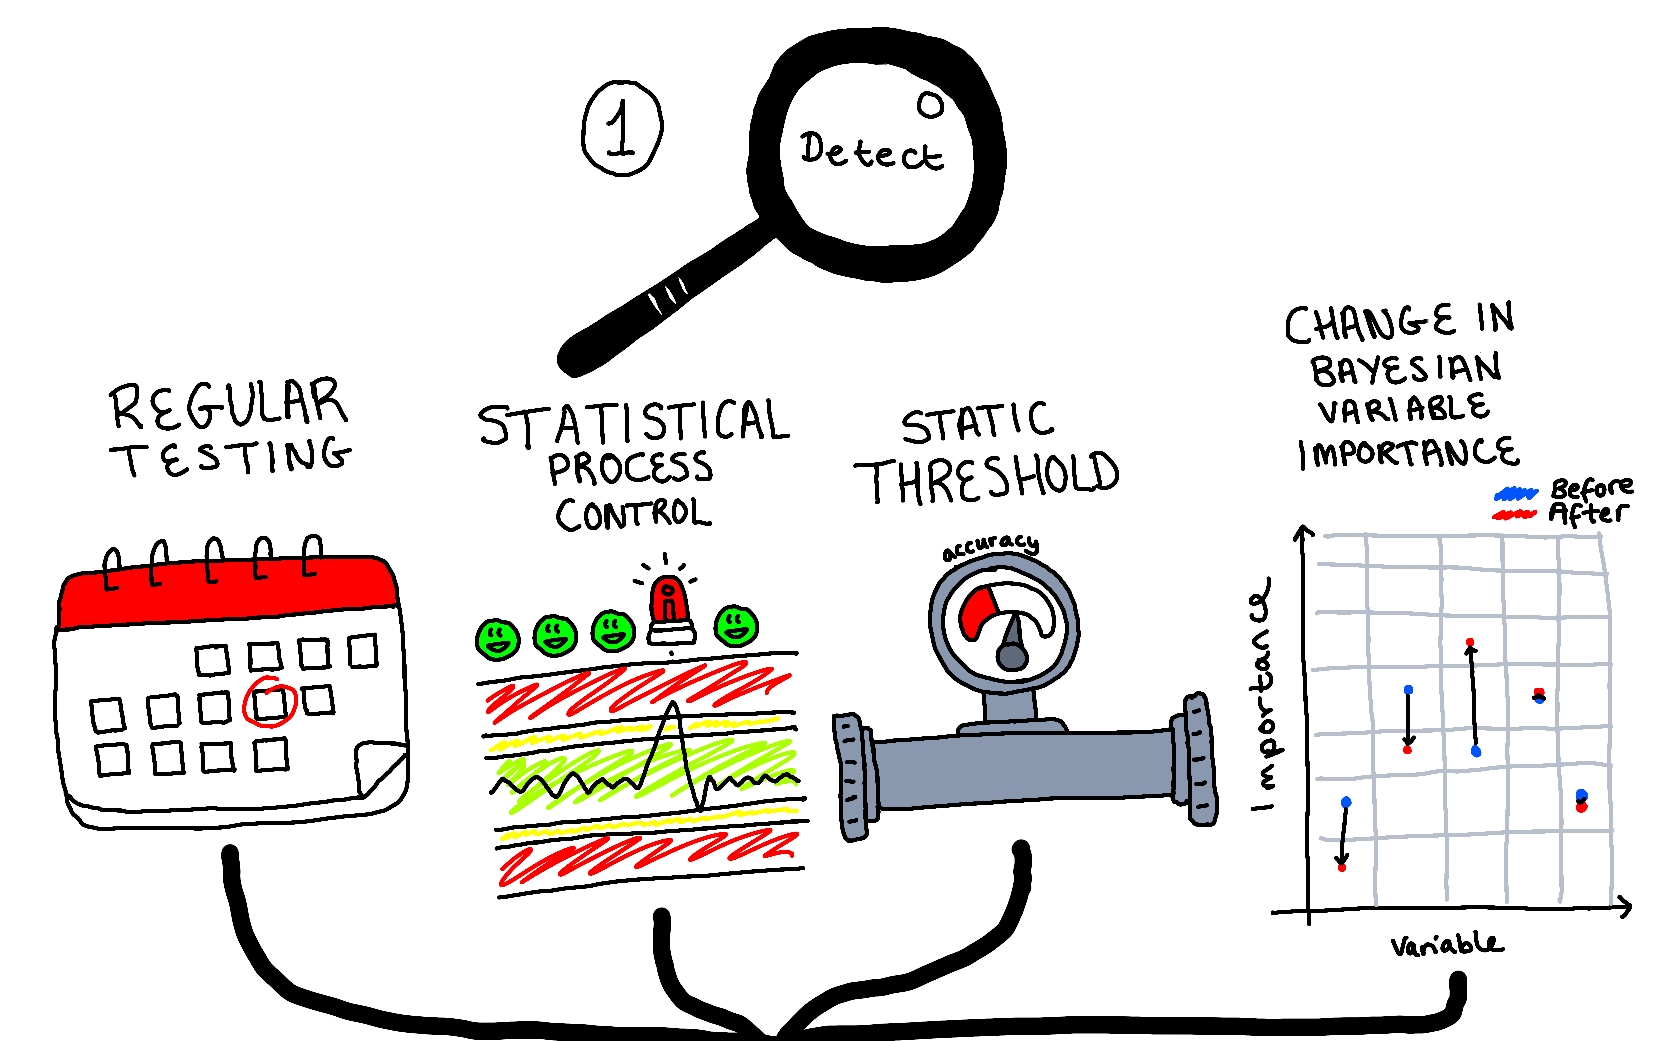 1
Detect
REGULAR
TESTING
STATISTICAL
PROCESS
CONTROL
STATIC
THRESHOLD
accuracy
CHANGE IN
BAYESIAN
VARIABLE
IMPORTANCE
Before
After
Importance
Variable